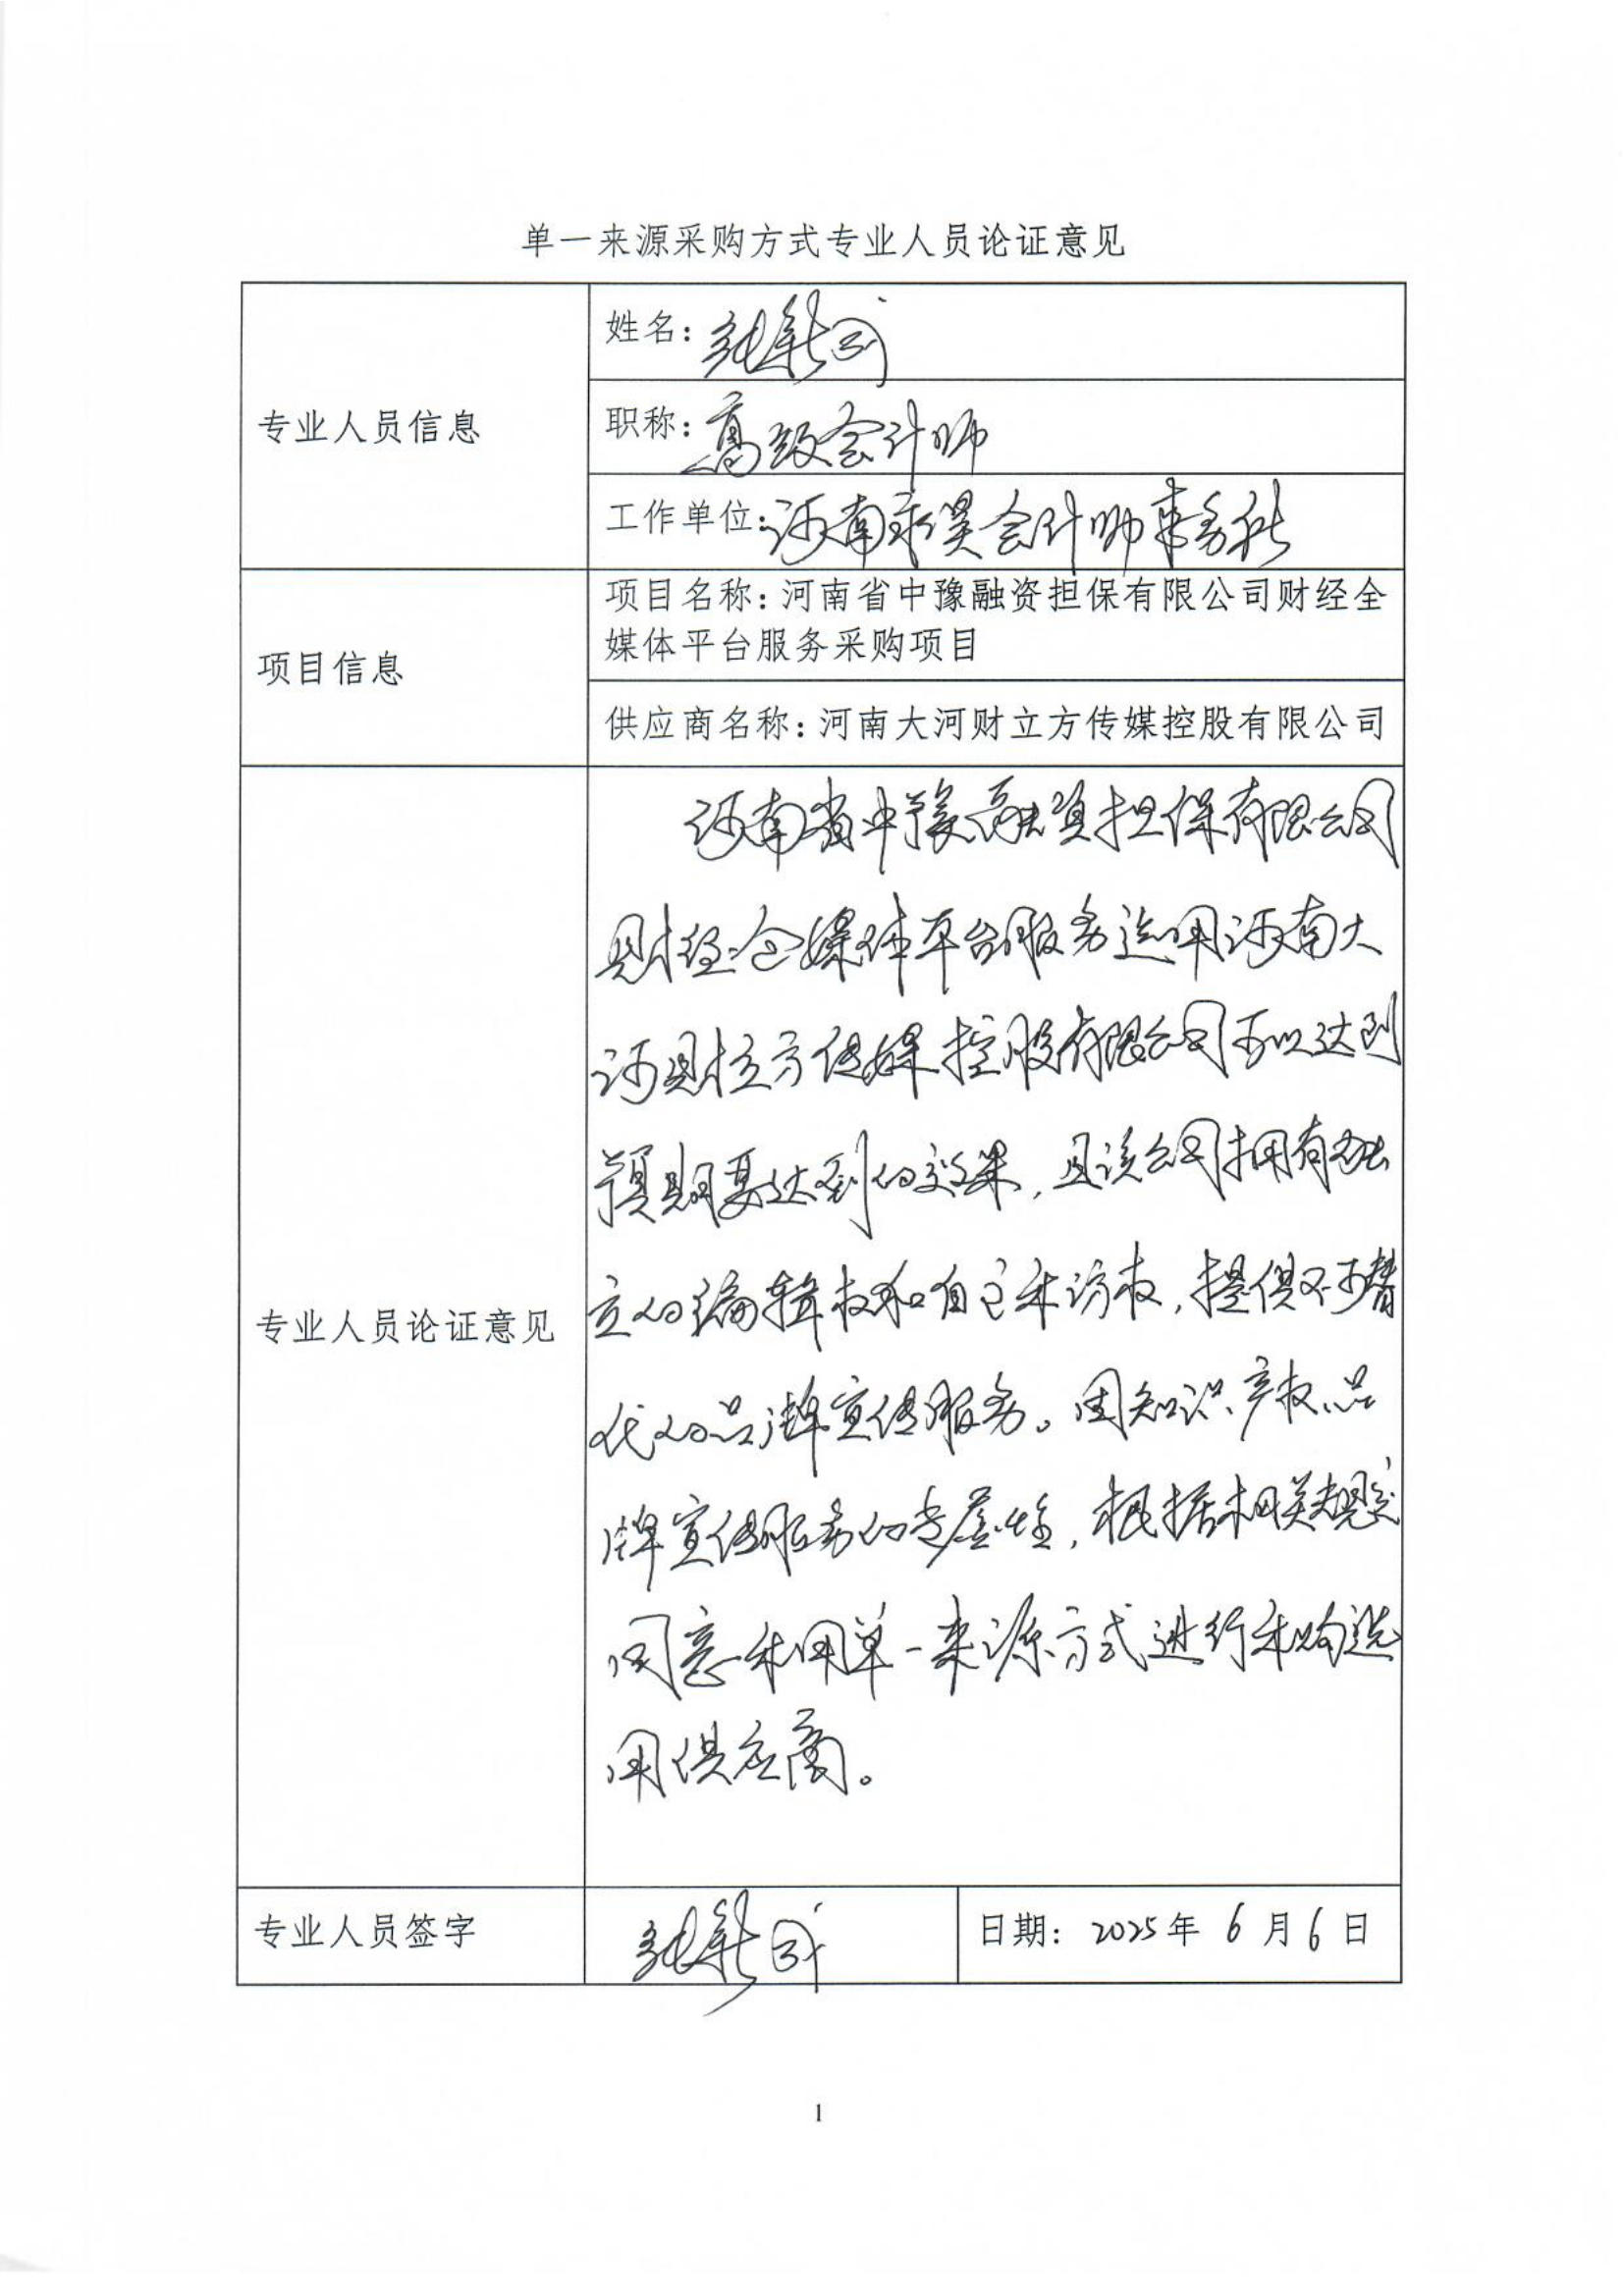 单一来源采购方式专业人员论证意见
专业人员信息
姓名：张新成
职称：高级会计师
工作单位：河南永昊会计师事务所
项目信息
项目名称：河南省中豫融资担保有限公司财经全
媒体平台服务采购项目
供应商名称：河南大河财立方传媒控股有限公司
专业人员论证意见
河南省中豫融资担保有限公司
财经全媒体平台服务选用河南大
河财立方传媒控股有限公司可以达到
预期要达到的效果，且该公司拥有独
立的编辑权和自主采访权，提供不可替
代的品牌宣传服务。因知识产权品
牌宣传服务的专属性，根据相关规定
同意采用单一来源方式进行采购选
用供应商。
专业人员签字
张新成
日期：2025年6月6日
1